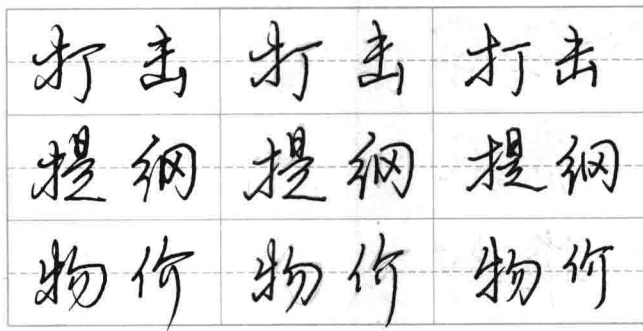 打击 打击 打击
提纲 提纲 提纲
物价 物价 物价